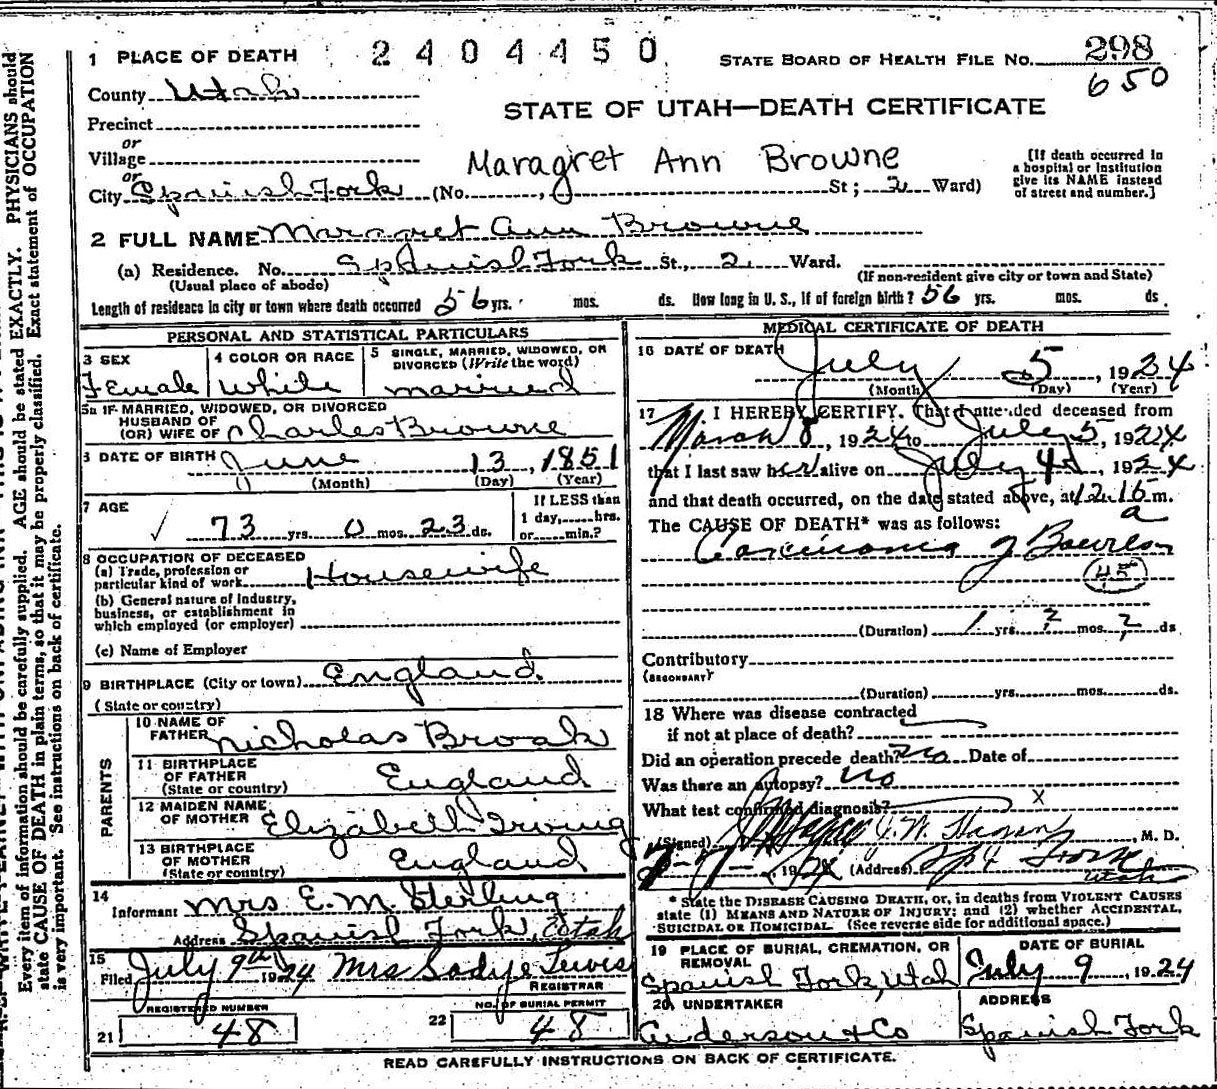 1 PLACE OF DEATH 2404450 STATE BOARD OF HEALTH FILE No. 298
650
County Utah
STATE OF UTAH—DEATH CERTIFICATE
Precinct
or
Village
Maragret Ann Browne
[If death occurred in a hospital or institution give its NAME instead of street and number.]
or
City Spanish Fork (No. , St; 2 Ward)
2 FULL NAME Margaret Ann Browne
(a) Residence. No. Spanish Fork St., 2 Ward.
(Usual place of abode) (If non-resident give city or town and State)
Length of residence in city or town where death occurred 56 yrs. mos. ds. How long in U. S., if of foreign birth? 56 yrs. mos. ds.
PERSONAL AND STATISTICAL PARTICULARS
3 SEX
Female
4 COLOR OR RACE
White
5 SINGLE, MARRIED, WIDOWED, OR DIVORCED (Write the word)
married
5a IF MARRIED, WIDOWED, OR DIVORCED
HUSBAND OF
(OR) WIFE OF Charles Browne
6 DATE OF BIRTH June 13, 1851
(Month) (Day) (Year)
7 AGE
73 yrs. 0 mos. 23 ds.
If LESS than
1 day, hrs.
or min.?
8 OCCUPATION OF DECEASED
(a) Trade, profession or
particular kind of work Housewife
(b) General nature of Industry,
business, or establishment in
which employed (or employer)
(c) Name of Employer
9 BIRTHPLACE (City or town) England.
(State or country)
PARENTS
10 NAME OF
FATHER Nicholas Brook
11 BIRTHPLACE
OF FATHER England
(State or country)
12 MAIDEN NAME
OF MOTHER Elizabeth Irving
13 BIRTHPLACE
OF MOTHER England
(State or country)
14
Informant Mrs E. M. Sterling
Address Spanish Fork, Utah
15
Filed July 9th 1924 Mrs Sadye Lewis
REGISTRAR
REGISTERED NUMBER
21 48
NO. OF BURIAL PERMIT
22 48
MEDICAL CERTIFICATE OF DEATH
16 DATE OF DEATH
July 5, 1924
(Month) (Day) (Year)
17 I HEREBY CERTIFY. That I attended deceased from
March 8, 1924 to July 5, 1924
that I last saw her alive on July 4, 1924
and that death occurred, on the date stated above, at 12.15 m.
a
The CAUSE OF DEATH* was as follows:
Carcinoma of Bowels
45
(Duration) 1 yrs. ? mos. ? ds
Contributory
(SECONDARY)
(Duration) yrs. mos. ds.
18 Where was disease contracted
if not at place of death?
Did an operation precede death? No Date of
Was there an autopsy? No
What test confirmed diagnosis? x
(Signed) J. W. Hagan, M. D.
7-7-, 1924 (Address) Sp. Fork
Utah
* State the DISEASE CAUSING DEATH, or, in deaths from VIOLENT CAUSES
state (1) MEANS AND NATURE OF INJURY; and (2) whether ACCIDENTAL,
SUICIDAL OR HOMICIDAL. (See reverse side for additional space.)
19 PLACE OF BURIAL, CREMATION, OR
REMOVAL
Spanish Fork, Utah
DATE OF BURIAL
July 9, 1924
20 UNDERTAKER
Anderson & Co
ADDRESS
Spanish Fork
READ CAREFULLY INSTRUCTIONS ON BACK OF CERTIFICATE.
Every item of information should be carefully supplied. AGE should be stated EXACTLY. PHYSICIANS should
state CAUSE OF DEATH in plain terms, so that it may be properly classified. Exact statement of OCCUPATION
is very important. See instructions on back of certificate.